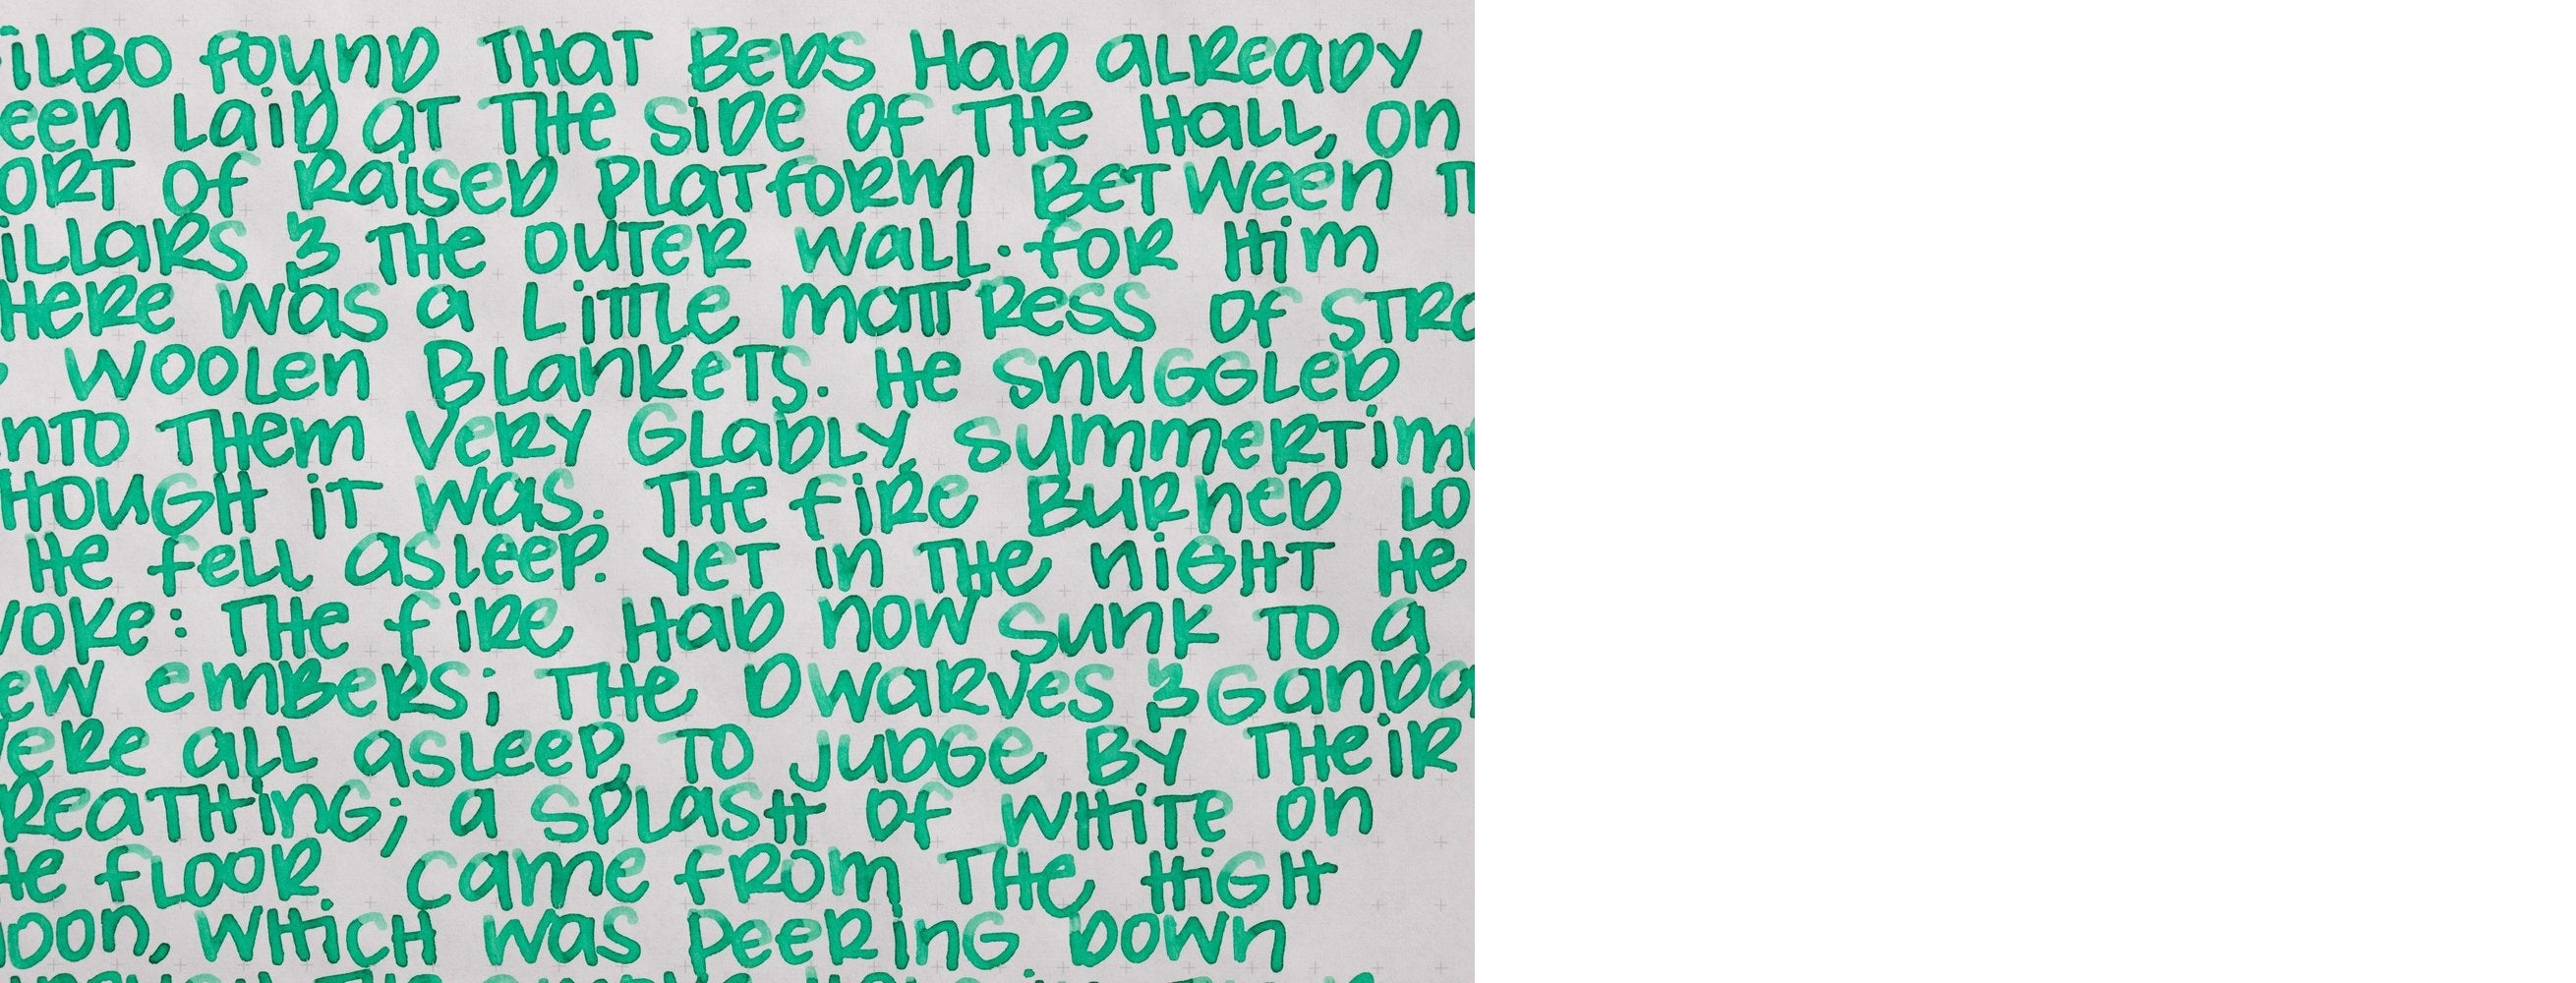 Bilbo found that beds had already
een laid at the side of the hall, on
ort of raised platform between t
illars & the outer wall. for him
here was a little mattress of stra
woolen blankets. He snuggled
nto them very gladly, summertime
hough it was. The fire burned lo
He fell asleep. Yet in the night he
woke: the fire had now sunk to a
ew embers; the dwarves & Ganda
were all asleep, to judge by their
reathing; a splash of white on
he floor came from the high
moon, which was peering down